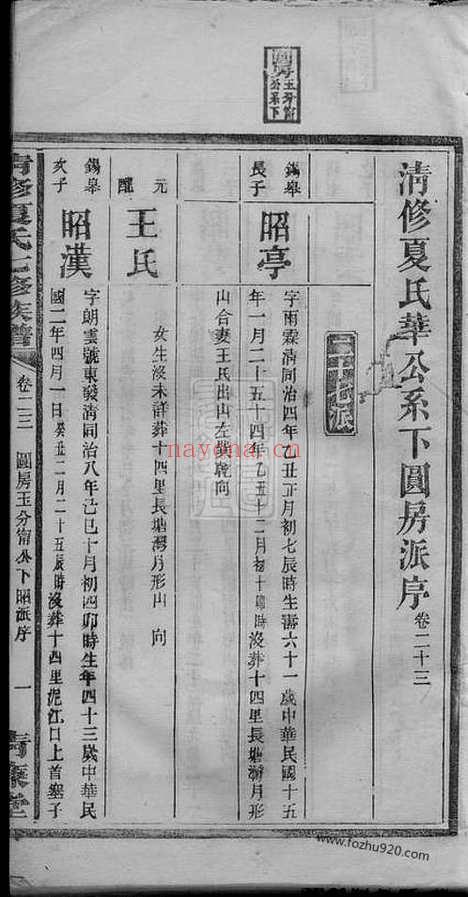 圓房玉分甯
公系下
清修夏氏華公系下圓房派序 卷二十三
錫皋
長子
昭亭
字雨霖清同治四年乙丑正月初七辰時生壽六十一歲中華民國十五
年一月二十五十四年乙丑十二月初十卯時沒葬十四里長塘灣月形
山合妻王氏出山左癸乾向
元
配
王氏
女生沒未詳葬十四里長塘灣月形山 向
錫皋
次子
昭漢
字朗雲號東發清同治八年己巳十月初四卯時生年四十三歲中華民
國二年四月一日癸丑二月二十五辰時沒葬十四里泥江口上首塞子
清修夏氏七修族譜
卷二三
圓房玉分甯公下昭派序
一
nayona.cn
www.fozhu920.com